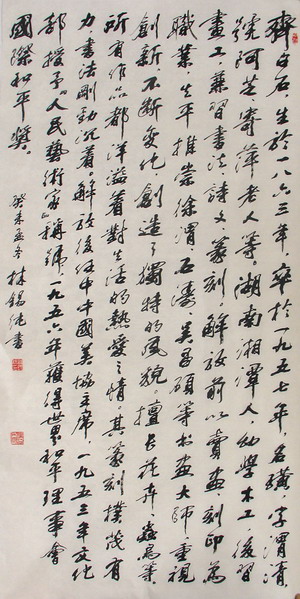 齊白石，生於一八六三年，卒於一九五七年，名璜，字渭清，
號阿芝、寄萍老人等。湖南湘潭人，幼學木工，後習
畫工，兼習書法、詩文、篆刻，解放前以賣畫、刻印為
職業，生平推崇徐渭、石濤、吳昌碩等老畫大師，重視
創新，不斷變化，創造了獨特的風貌。擅長花卉、蟲鳥等，
所有作品都洋溢着對生活的熱愛之情。其篆刻樸茂有
力，書法剛勁沉着。解放後任中國美協主席，一九五三年文化
部授予《人民藝術家》稱號，一九五六年獲得世界和平理事會
國際和平獎。
癸未孟冬 林錫純書